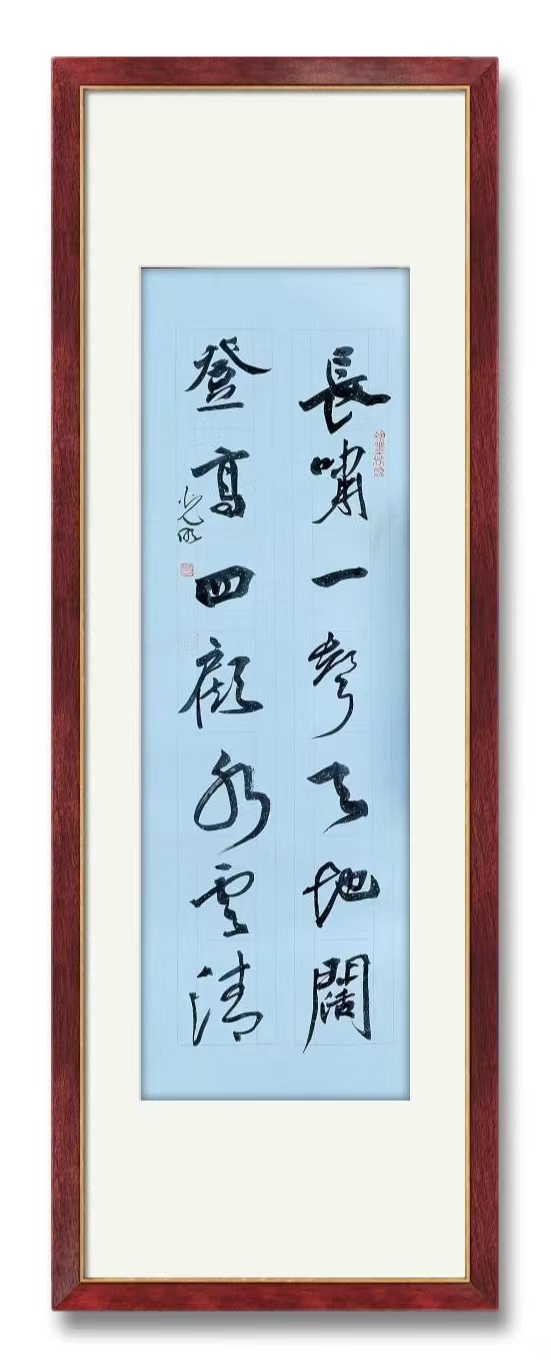 長嘯一聲天地闊
登高四顧水雲清
光明